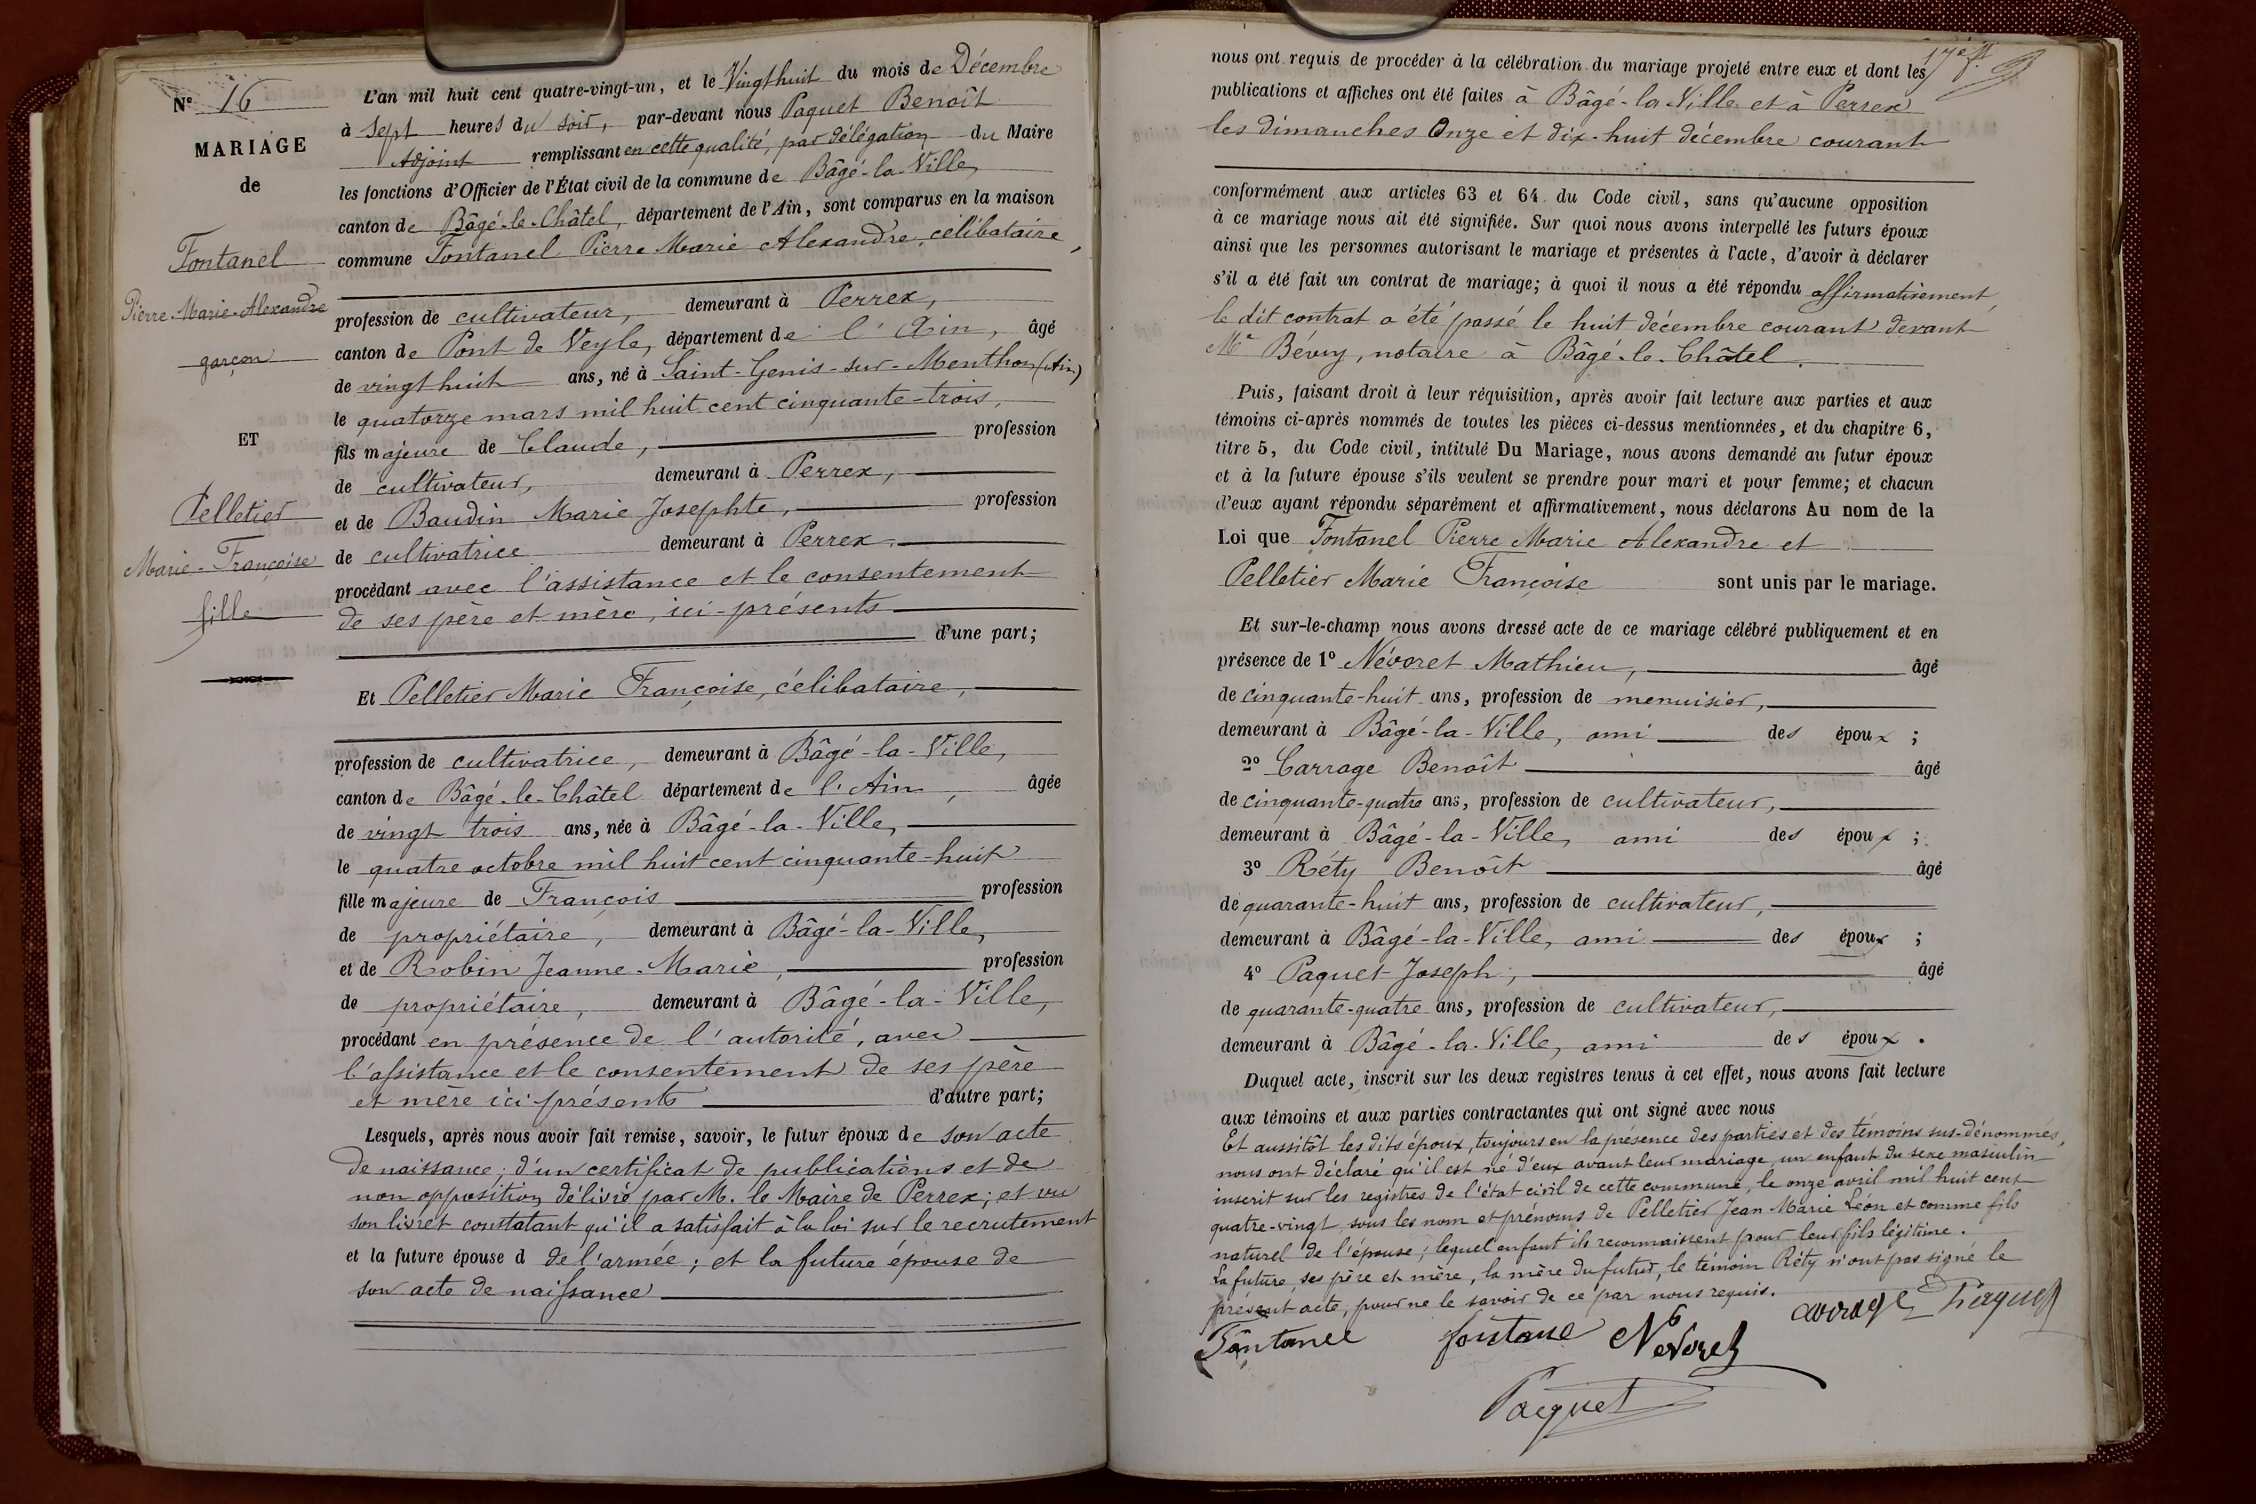 N° 16
MARIAGE
de
Fontanel
Pierre-Marie-Alexandre
garçon
ET
Pelletier
Marie-Françoise
fille
L'an mil huit cent quatre-vingt-un, et le Vingt huit du mois de Décembre
à sept heures du soir, par-devant nous Paquet Benoît
Adjoint remplissant en cette qualité, par délégation du Maire
les fonctions d'Officier de l'État civil de la commune de Bâgé-la-Ville,
canton de Bâgé-le-Châtel, département de l'Ain, sont comparus en la maison
commune Fontanel Pierre Marie Alexandre, célibataire,
profession de cultivateur, demeurant à Perrex,
canton de Pont de Veyle, département de l'Ain, âgé
de vingt huit ans, né à Saint-Genis-sur-Menthon (Ain)
le quatorze mars mil huit cent cinquante-trois,
fils majeure de Claude, profession
de cultivateur, demeurant à Perrex,
et de Baudin Marie Josephte, profession
de cultivatrice demeurant à Perrex,
procédant avec l'assistance et le consentement
de ses père et mère, ici-présents
d'une part;
Et Pelletier Marie Françoise, célibataire,
profession de cultivatrice, demeurant à Bâgé-la-Ville,
canton de Bâgé-le-Châtel département de l'Ain, âgée
de vingt trois ans, née à Bâgé-la-Ville,
le quatre octobre mil huit cent cinquante-huit
fille majeure de François profession
de propriétaire, demeurant à Bâgé-la-Ville,
et de Robin Jeanne-Marie, profession
de propriétaire, demeurant à Bâgé-la-Ville,
procédant en présence de l'autorité, avec
l'assistance et le consentement de ses père
et mère ici présents d'autre part;
Lesquels, après nous avoir fait remise, savoir, le futur époux de son acte
de naissance; d'un certificat de publications et de
non opposition délivré par M. le Maire de Perrex; et vu
son livret constatant qu'il a satisfait à la loi sur le recrutement
et la future épouse d de l'armée; et la future épouse de
son acte de naissance
17e f.
nous ont requis de procéder à la célébration du mariage projeté entre eux et dont les
publications et affiches ont été faites à Bâgé-la-Ville et à Perrex
les dimanches Onze et dix-huit décembre courant
conformément aux articles 63 et 64 du Code civil, sans qu'aucune opposition
à ce mariage nous ait été signifiée. Sur quoi nous avons interpellé les futurs époux
ainsi que les personnes autorisant le mariage et présentes à l'acte, d'avoir à déclarer
s'il a été fait un contrat de mariage; à quoi il nous a été répondu affirmativement,
le dit contrat a été passé le huit décembre courant devant
Me Bévy, notaire à Bâgé-le-Châtel.
Puis, faisant droit à leur réquisition, après avoir fait lecture aux parties et aux
témoins ci-après nommés de toutes les pièces ci-dessus mentionnées, et du chapitre 6,
titre 5, du Code civil, intitulé Du Mariage, nous avons demandé au futur époux
et à la future épouse s'ils veulent se prendre pour mari et pour femme; et chacun
d'eux ayant répondu séparément et affirmativement, nous déclarons Au nom de la
Loi que Fontanel Pierre Marie Alexandre et
Pelletier Marie Françoise sont unis par le mariage.
Et sur-le-champ nous avons dressé acte de ce mariage célébré publiquement et en
présence de 1° Névoret Mathieu, âgé
de cinquante-huit ans, profession de menuisier,
demeurant à Bâgé-la-Ville, ami des époux;
2° Carrage Benoît âgé
de cinquante-quatre ans, profession de cultivateur,
demeurant à Bâgé-la-Ville, ami des époux;
3° Réty Benoît âgé
de quarante-huit ans, profession de cultivateur,
demeurant à Bâgé-la-Ville, ami des époux;
4° Paquet Joseph, âgé
de quarante-quatre ans, profession de cultivateur,
demeurant à Bâgé-la-Ville, ami des époux.
Duquel acte, inscrit sur les deux registres tenus à cet effet, nous avons fait lecture
aux témoins et aux parties contractantes qui ont signé avec nous
Et aussitôt les dits époux, toujours en la présence des parties et des témoins sus-dénommés,
nous ont déclaré qu'il est né d'eux avant leur mariage un enfant du sexe masculin
inscrit sur les registres de l'état civil de cette commune, le onze avril mil huit cent
quatre-vingt sous les nom et prénoms de Pelletier Jean Marie Léon et comme fils
naturel de l'épouse; lequel enfant ils reconnaissent pour leur fils légitime.
La future, ses père et mère, la mère du futur, le témoin Réty n'ont pas signé le
présent acte, pour ne le savoir de ce par nous requis.
Fontanel fontane Nevoret carrage Paquet
Paquet